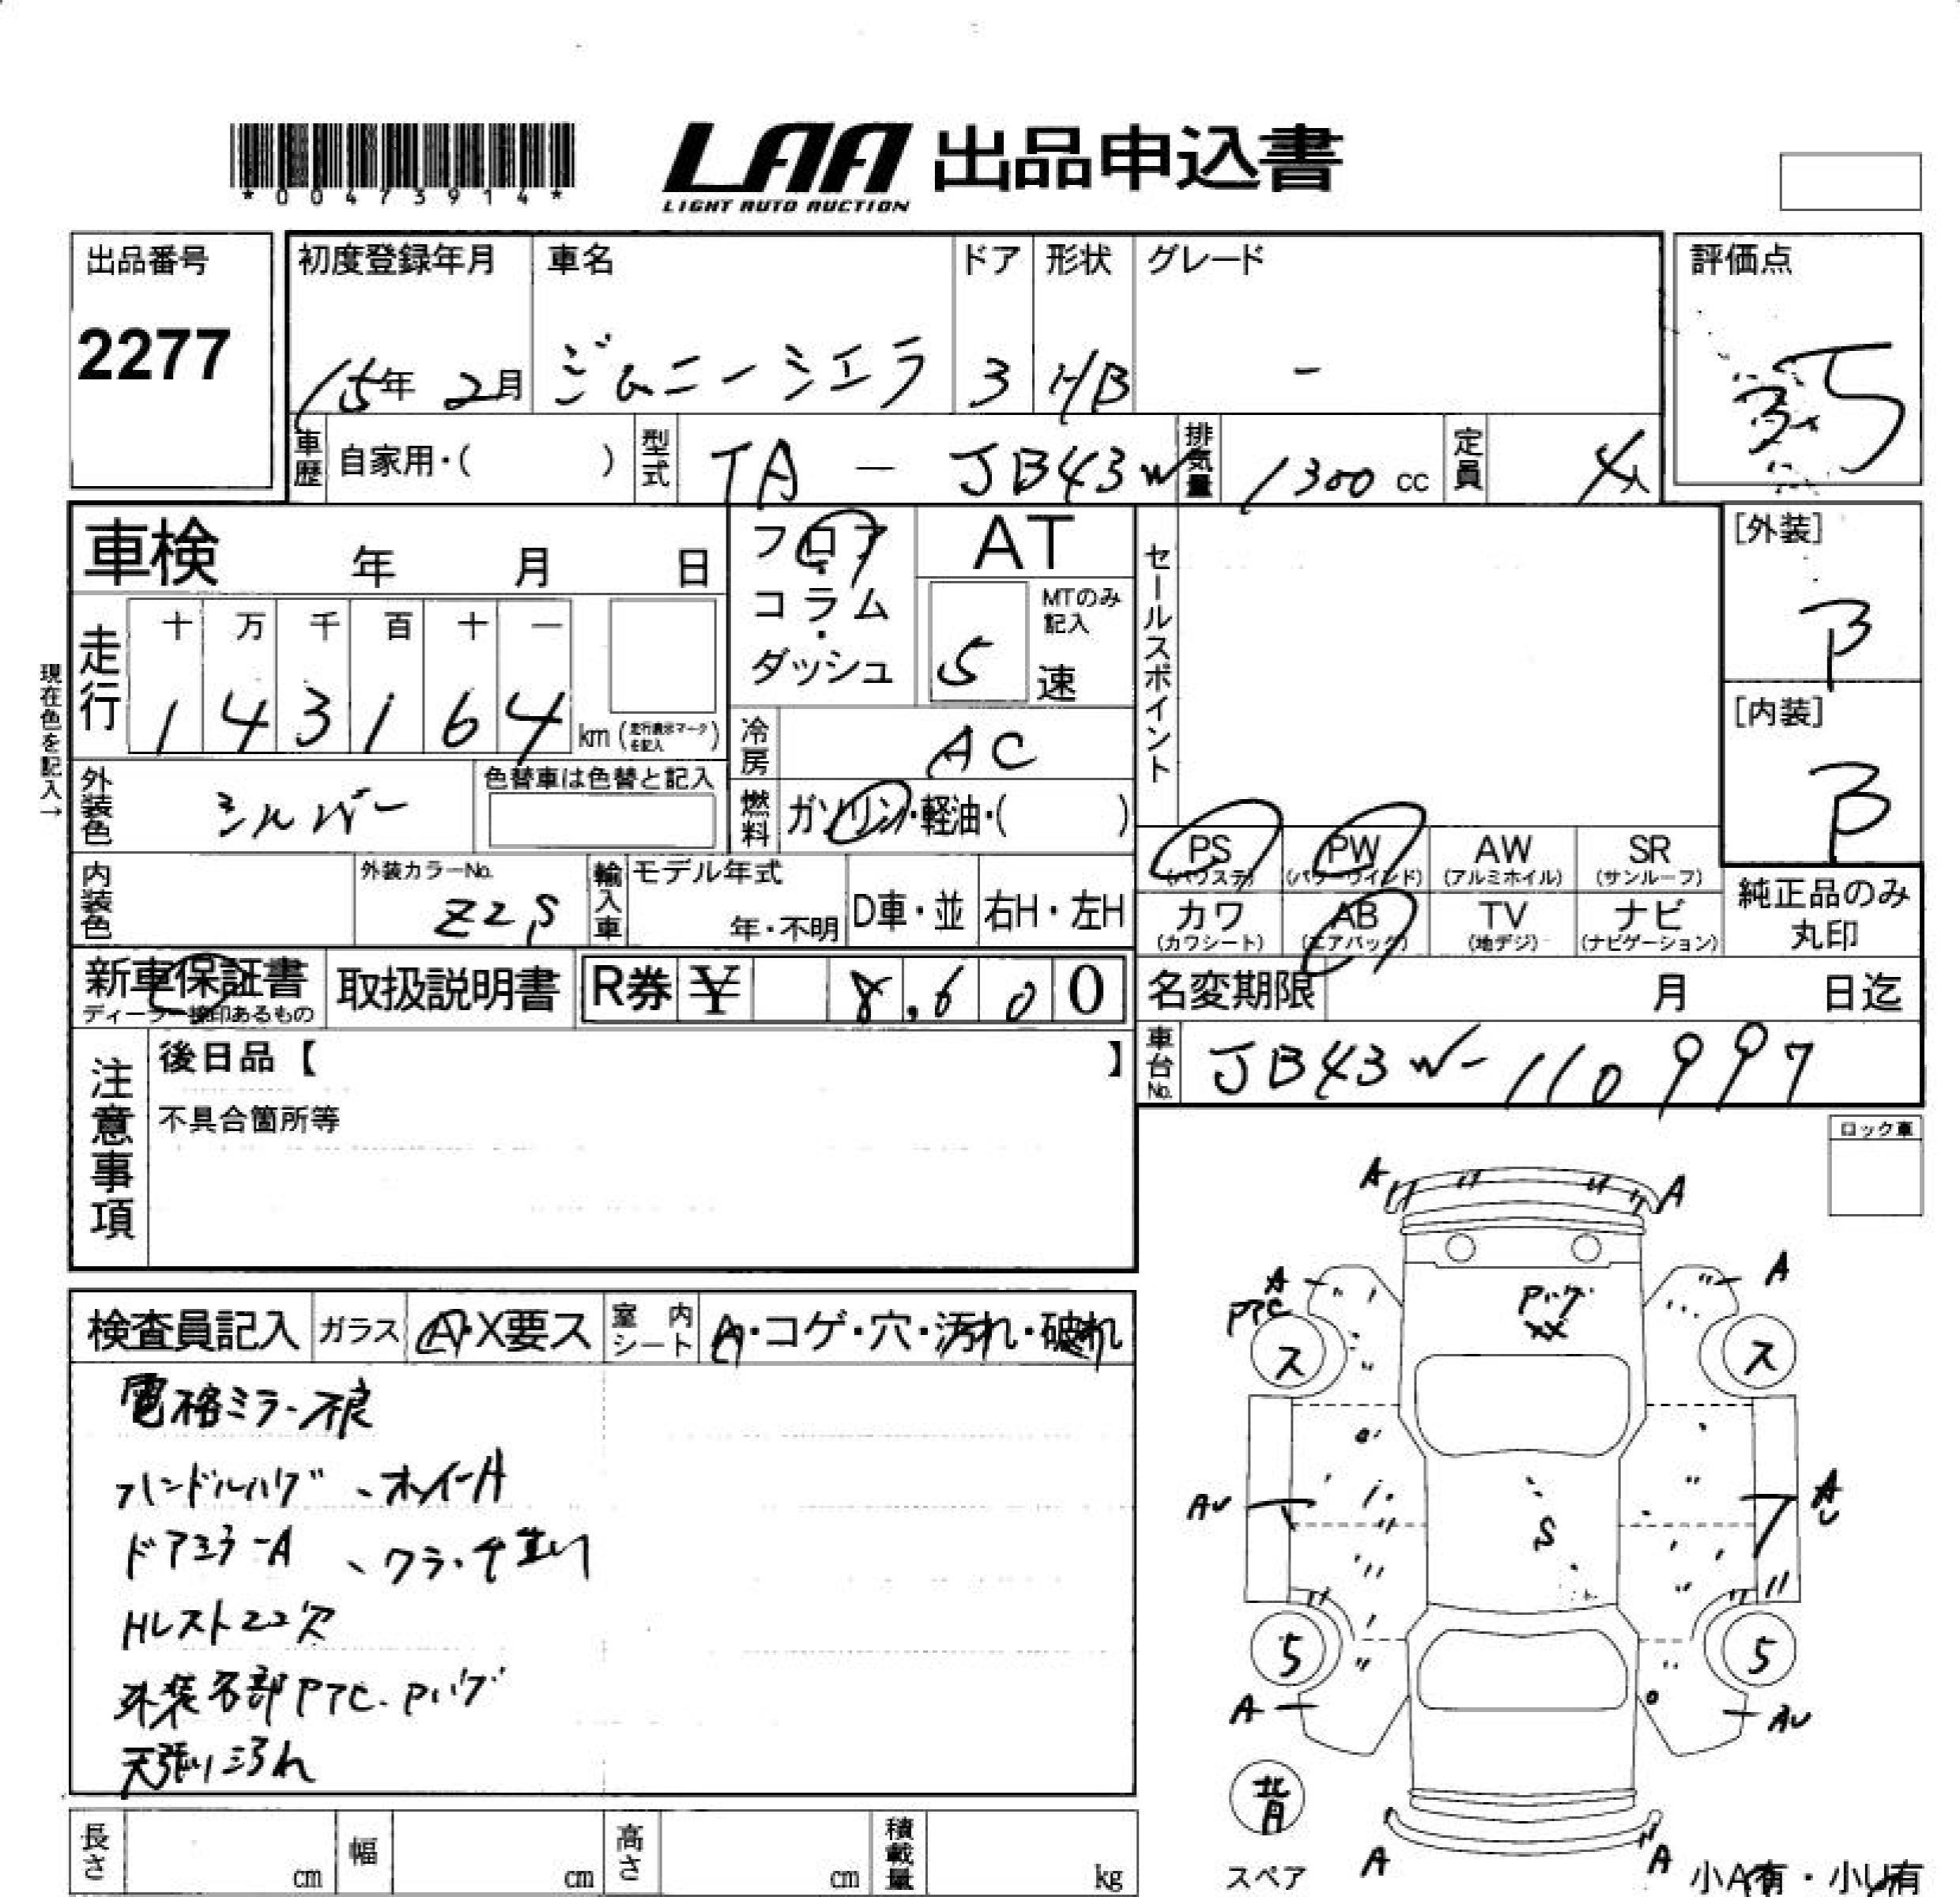 *00473914*
LAA 出品申込書
LIGHT AUTO AUCTION
出品番号 初度登録年月 車名 ドア 形状 グレード 評価点
2277 15年 2月 ジムニーシエラ 3 HB - 3.5
車歴 自家用・( ) 型式 TA - JB43W 排気量 1300 cc 定員 4人
車検 年 月 日 フロア・コラム・ダッシュ AT セールスポイント [外装]
B
5 速 MTのみ記入
現在色を記入→
走行 十 万 千 百 十 一
1 4 3 1 6 4 km (走行表示マークを記入)
[内装]
B
冷房 AC
外装色 シルバー 色替車は色替と記入 燃料 ガソリン・軽油・( )
PS (パワステ) PW (パワーウインド) AW (アルミホイル) SR (サンルーフ)
内装色 外装カラーNo. Z2S 輸入車 モデル年式 年・不明 D車・並 右H・左H
カワ (カワシート) AB (エアバック) TV (地デジ) ナビ (ナビゲーション) 純正品のみ丸印
新車保証書 取扱説明書 R券 ¥ 8,600 名変期限 月 日迄
ディーラー捺印あるもの
車台No. JB43W-110997
注意事項 後日品【 】
不具合箇所等
ロック車
検査員記入 ガラス A・X要ス 室内シート A・コゲ・穴・汚れ・破れ
電格ミラー不良
ハンドルハゲ、ホイールA
ドアミラーA、クラッチ重い
Hレスト22欠
外装各部PTC.Pハゲ
天張りヨゴレ
A A
A A
PTC Pハゲ
XX
ス ス
AU A
U
S
5 5
A AU
背
スペア A A 小A有・小U有
長さ cm 幅 cm 高さ cm 積載量 kg